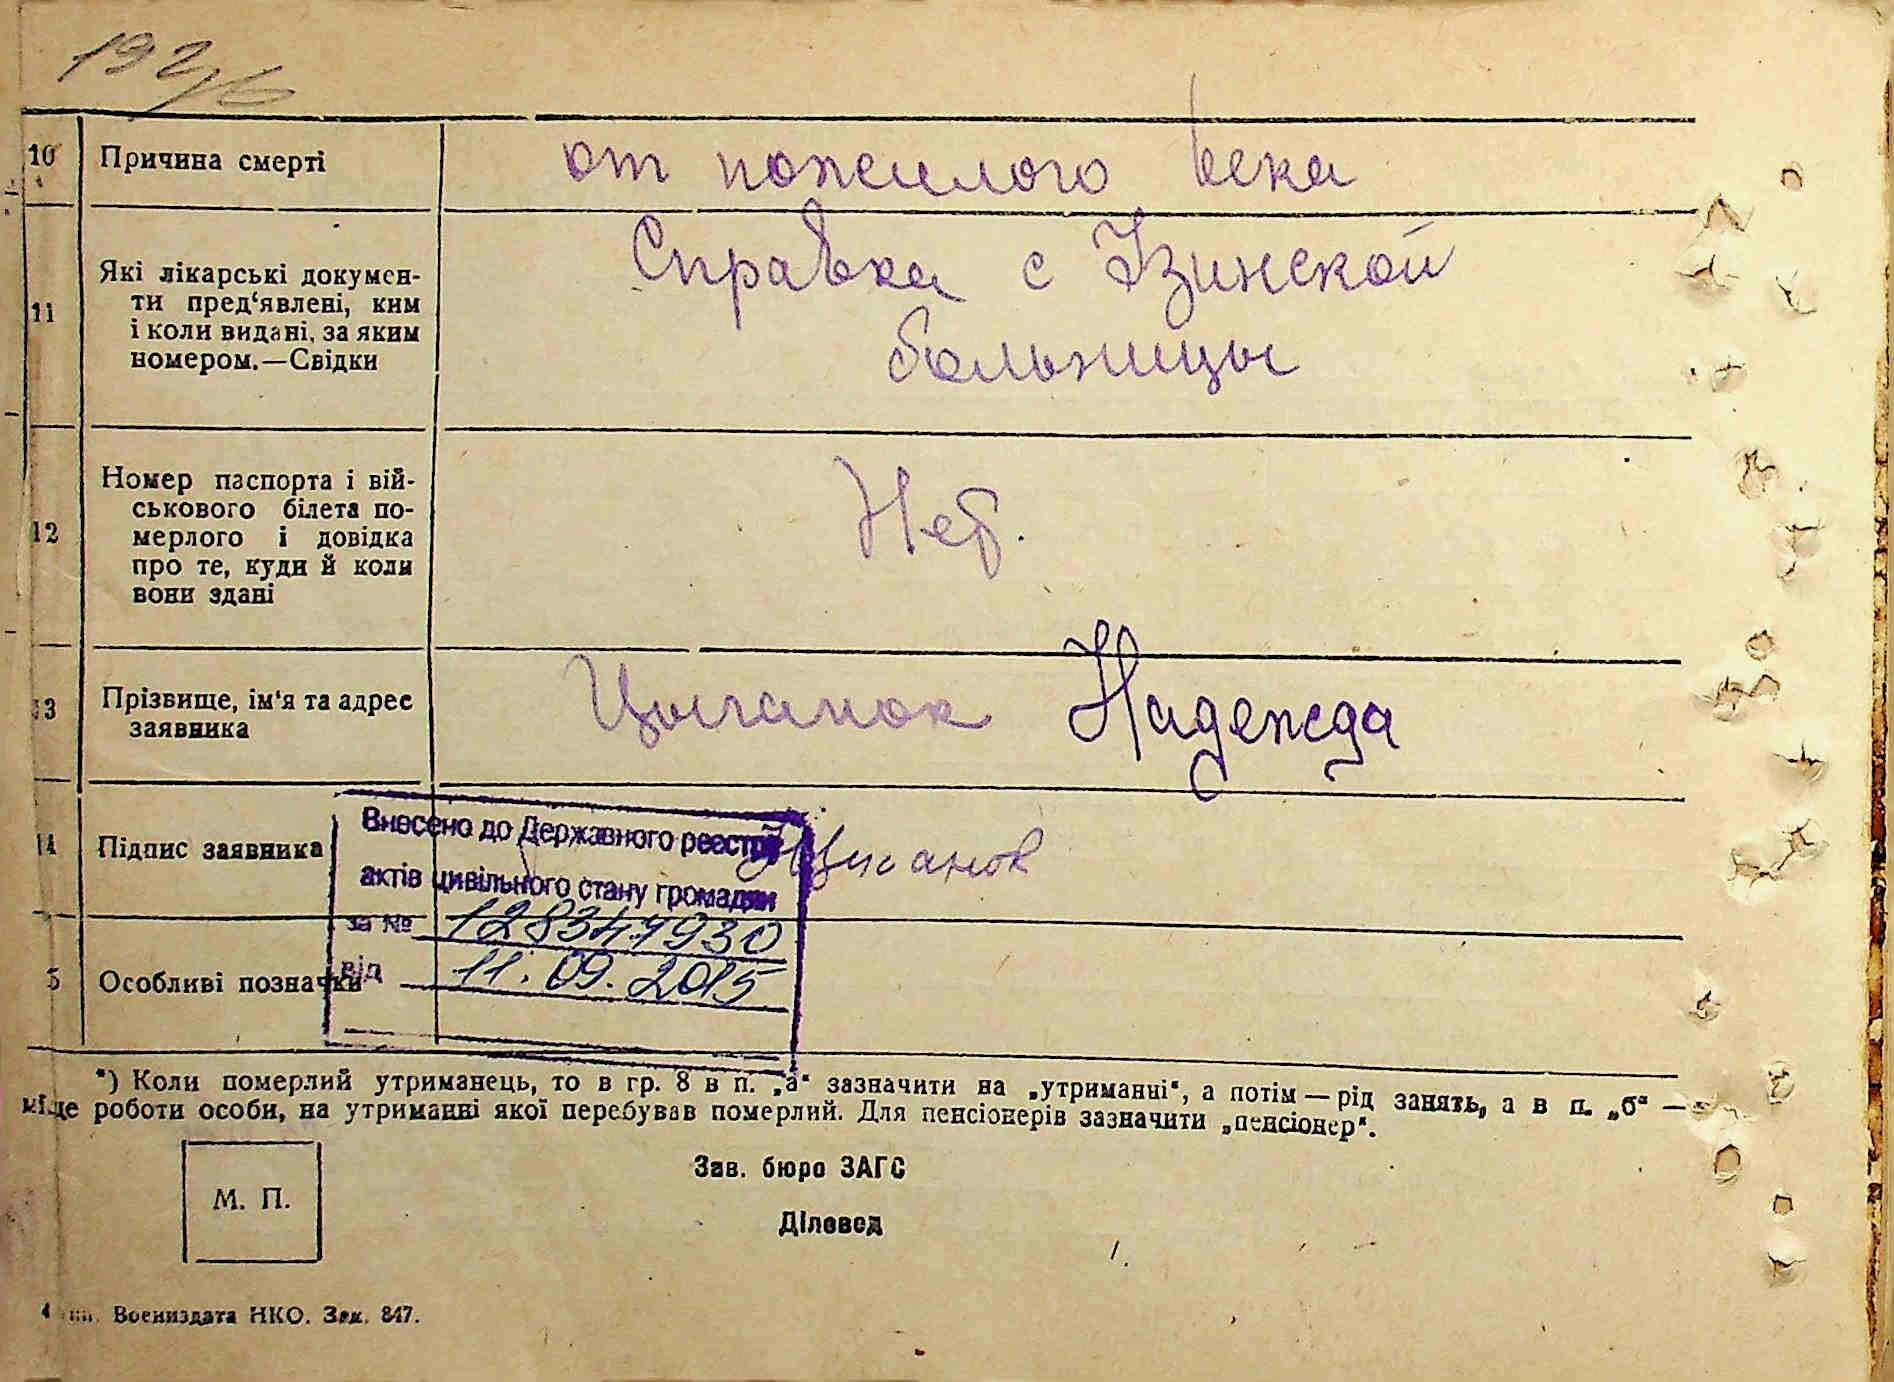 10 Причина смерті
от пожилого века
11 Які лікарські докумен-
ти пред‘явлені, ким
і коли видані, за яким
номером.—Свідки
Справка с Узинской
больницы
12 Номер паспорта і вій-
ськового білета по-
мерлого і довідка
про те, куди й коли
вони здані
Нет.
13 Прізвище, ім‘я та адрес
заявника
Цыганок Надежда
14 Підпис заявника
Цыганок
Внесено до Державного реєстру
актів цивільного стану громадян
за № 128347930
від 11.09.2015
5 Особливі позначки
*) Коли померлий утриманець, то в гр. 8 в п. „а“ зазначити на „утриманні“, а потім — рід занять, а в п. „б“ —
місце роботи особи, на утриманні якої перебував померлий. Для пенсіонерів зазначити „пенсіонер“.
М. П.
Зав. бюро ЗАГС
Діловод
Воениздата НКО. Зак. 847.